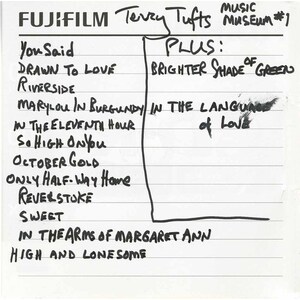 FUJIFILM
Terry Tufts
MUSIC
MUSEUM #1
You Said
DRAWN TO LOVE
RIVERSIDE
MARYLOU IN BURGUNDY
IN THE ELEVENTH HOUR
SO HIGH ON YOU
OCTOBER GOLD
ONLY HALF-WAY HOME
REVERSTOKE
SWEET
IN THE ARMS OF MARGARET ANN
HIGH AND LONESOME
PLUS:
BRIGHTER SHADE OF GREEN
IN THE LANGUAGE
of LOVE